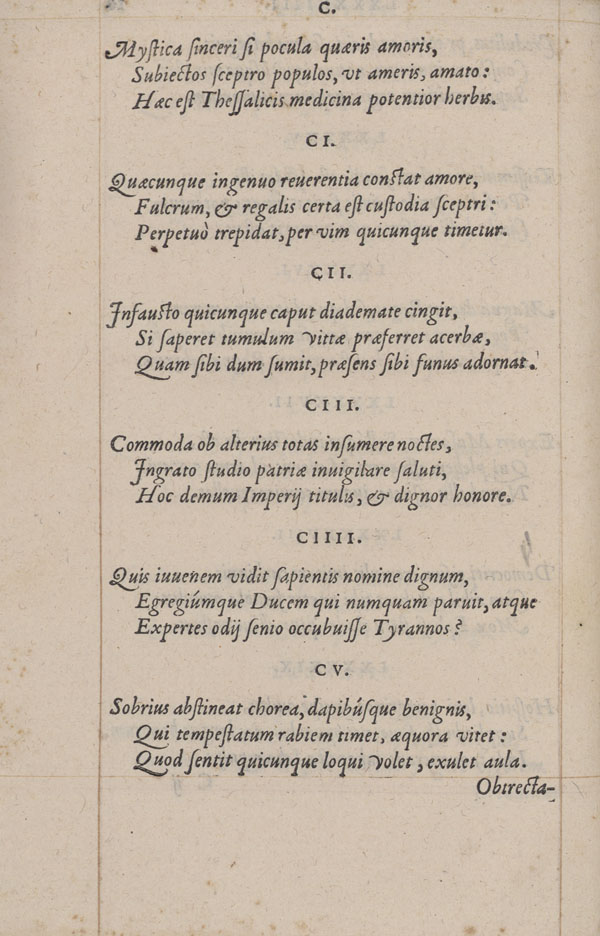 C.
Mystica sinceri si pocula quæris amoris,
Subiectos sceptro populos, vt ameris, amato:
Hæc est Thessalicis medicina potentior herbis.
CI.
Quæcunque ingenuo reuerentia constat amore,
Fulcrum, & regalis certa est custodia sceptri:
Perpetuò trepidat, per vim quicunque timetur.
CII.
Infausto quicunque caput diademate cingit,
Si saperet tumulum vittæ præferret acerbæ,
Quam sibi dum sumit, præsens sibi funus adornat.
CIII.
Commoda ob alterius totas insumere noctes,
Ingrato studio patriæ inuigilare saluti,
Hoc demum Imperij titulis, & dignor honore.
CIIII.
Quis iuuenem vidit sapientis nomine dignum,
Egregiúmque Ducem qui numquam paruit, atque
Expertes odij senio occubuisse Tyrannos?
CV.
Sobrius abstineat chorea, dapibúsque benignis,
Qui tempestatum rabiem timet, æquora vitet:
Quod sentit quicunque loqui volet, exulet aula.
Obtrecta-